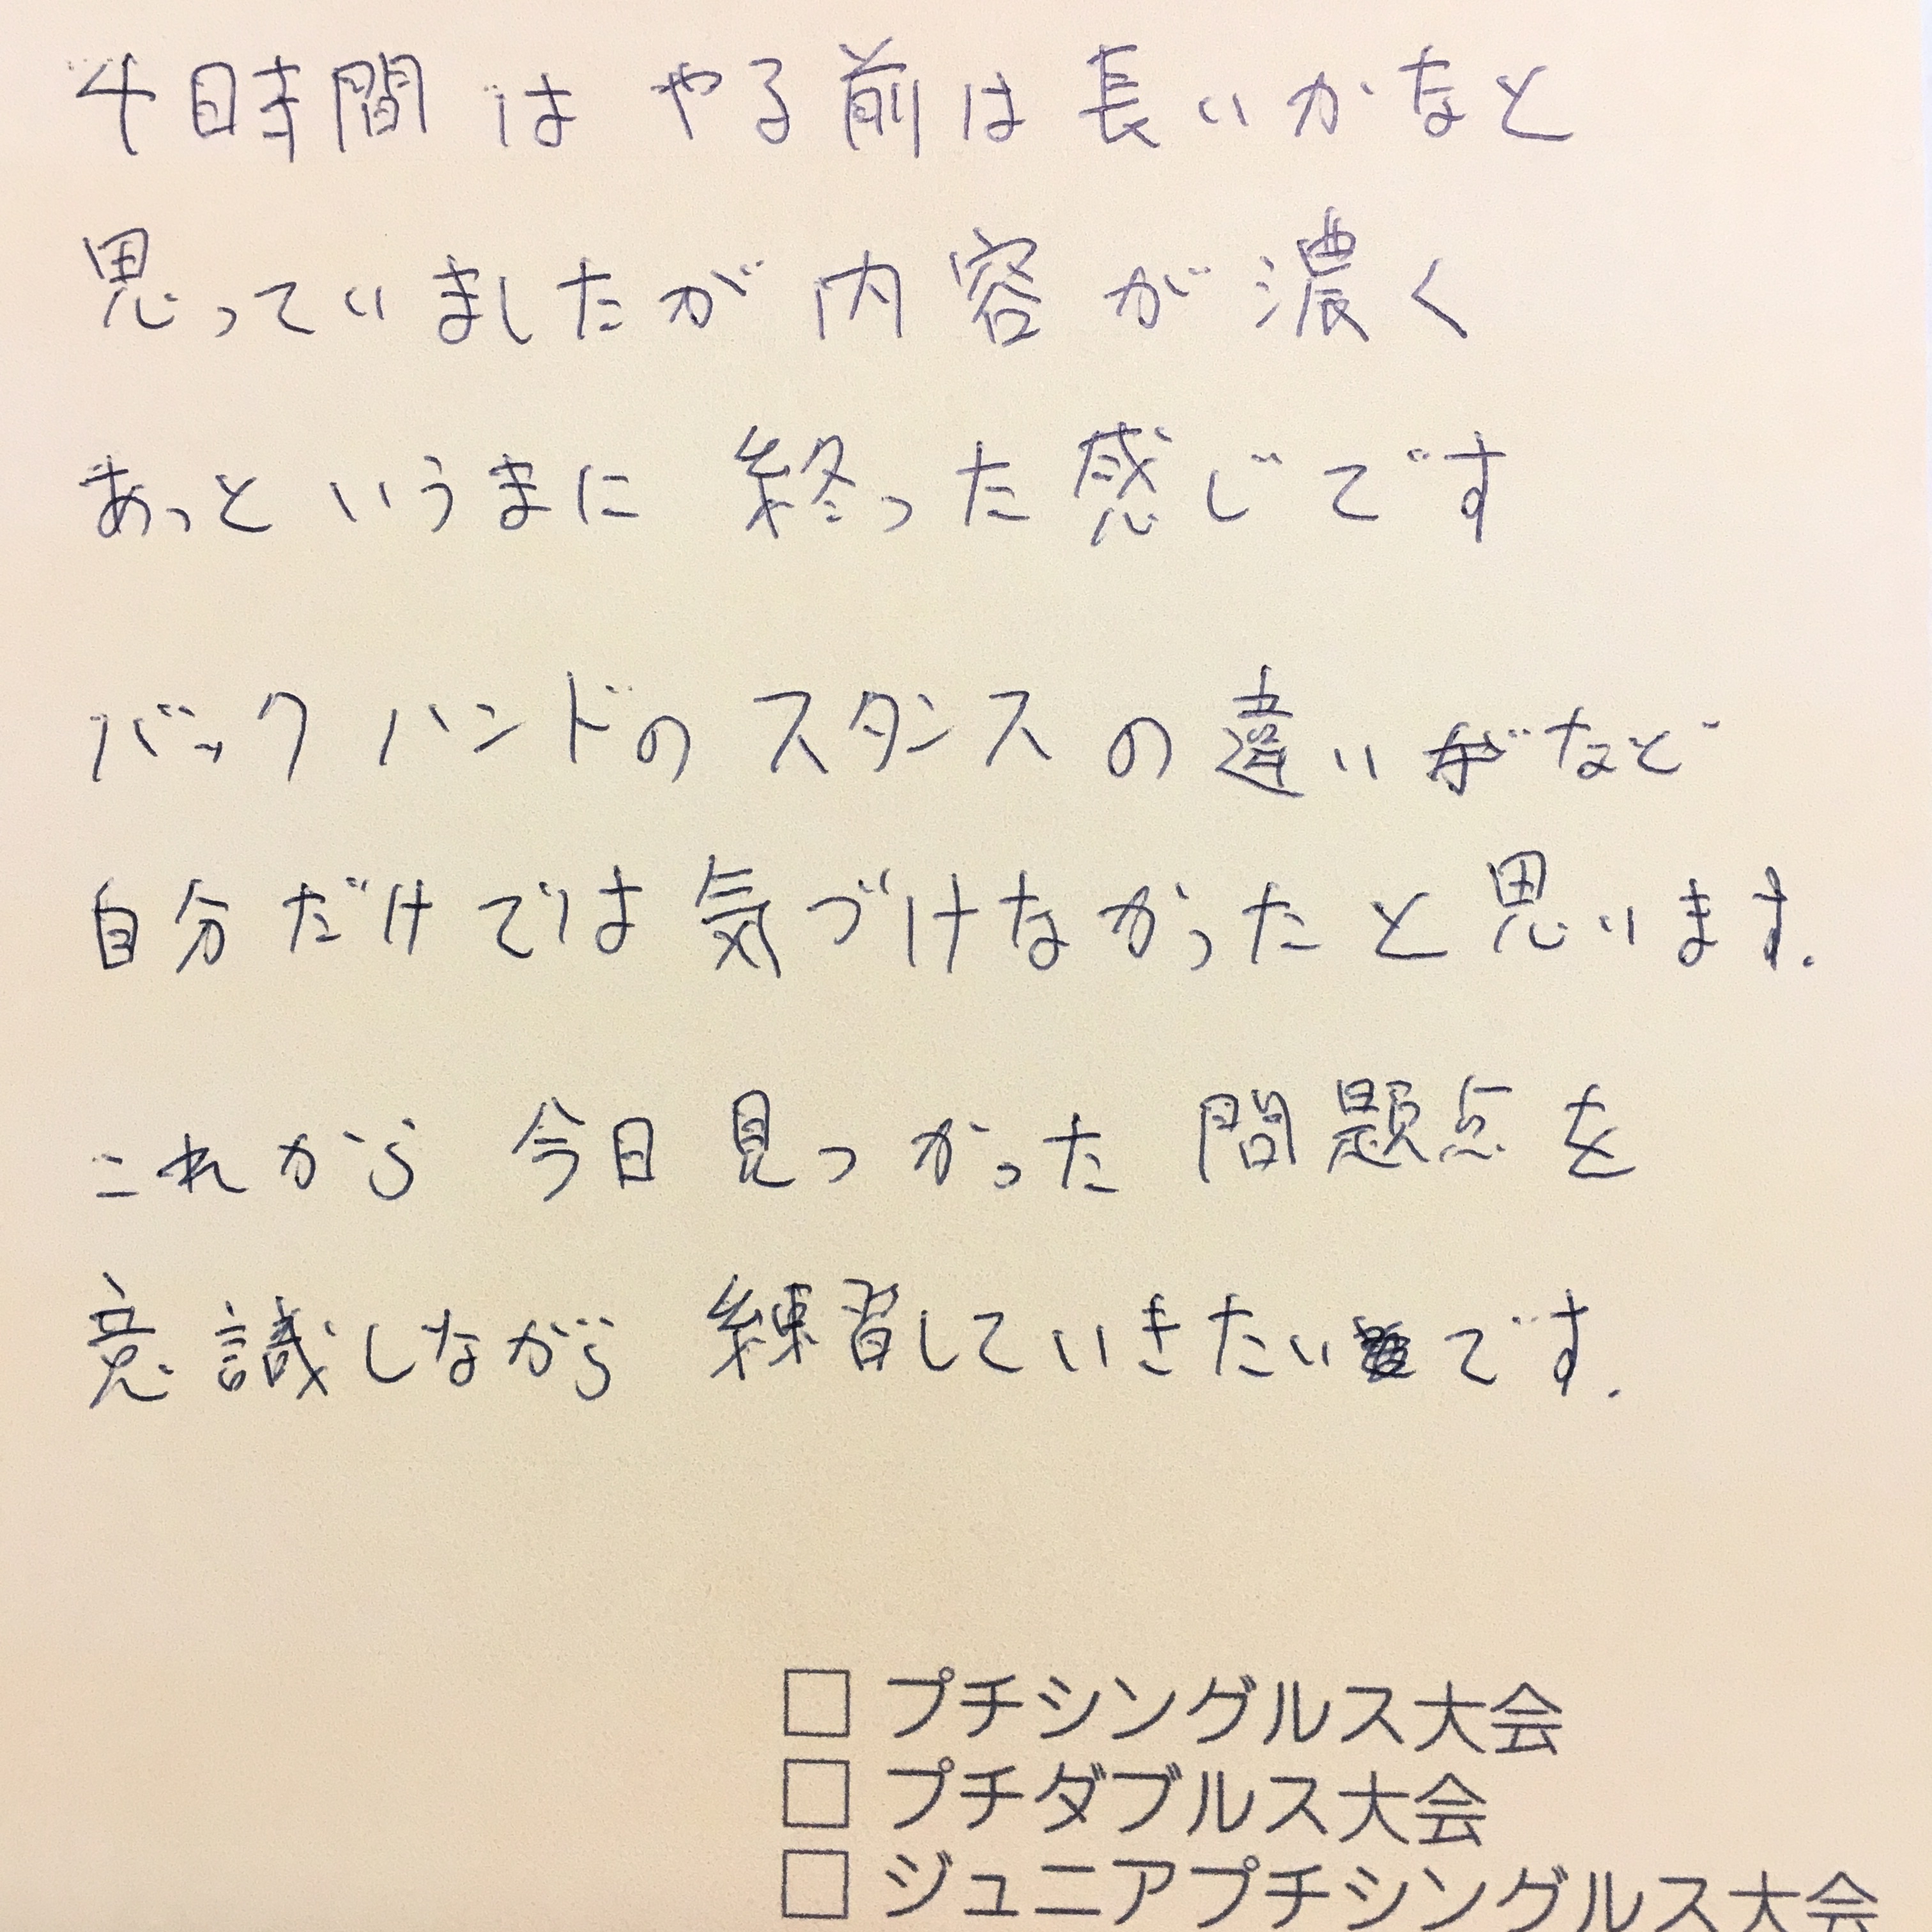 4時間は やる前は長いかなと
思っていましたが内容が濃く
あっというまに 終った感じです
バックハンドのスタンスの違いがなど
自分だけでは気づけなかったと思います.
これから 今日見つかった問題点を
意識しながら 練習していきたいです.
□ プチシングルス大会
□ プチダブルス大会
□ ジュニアプチシングルス大会